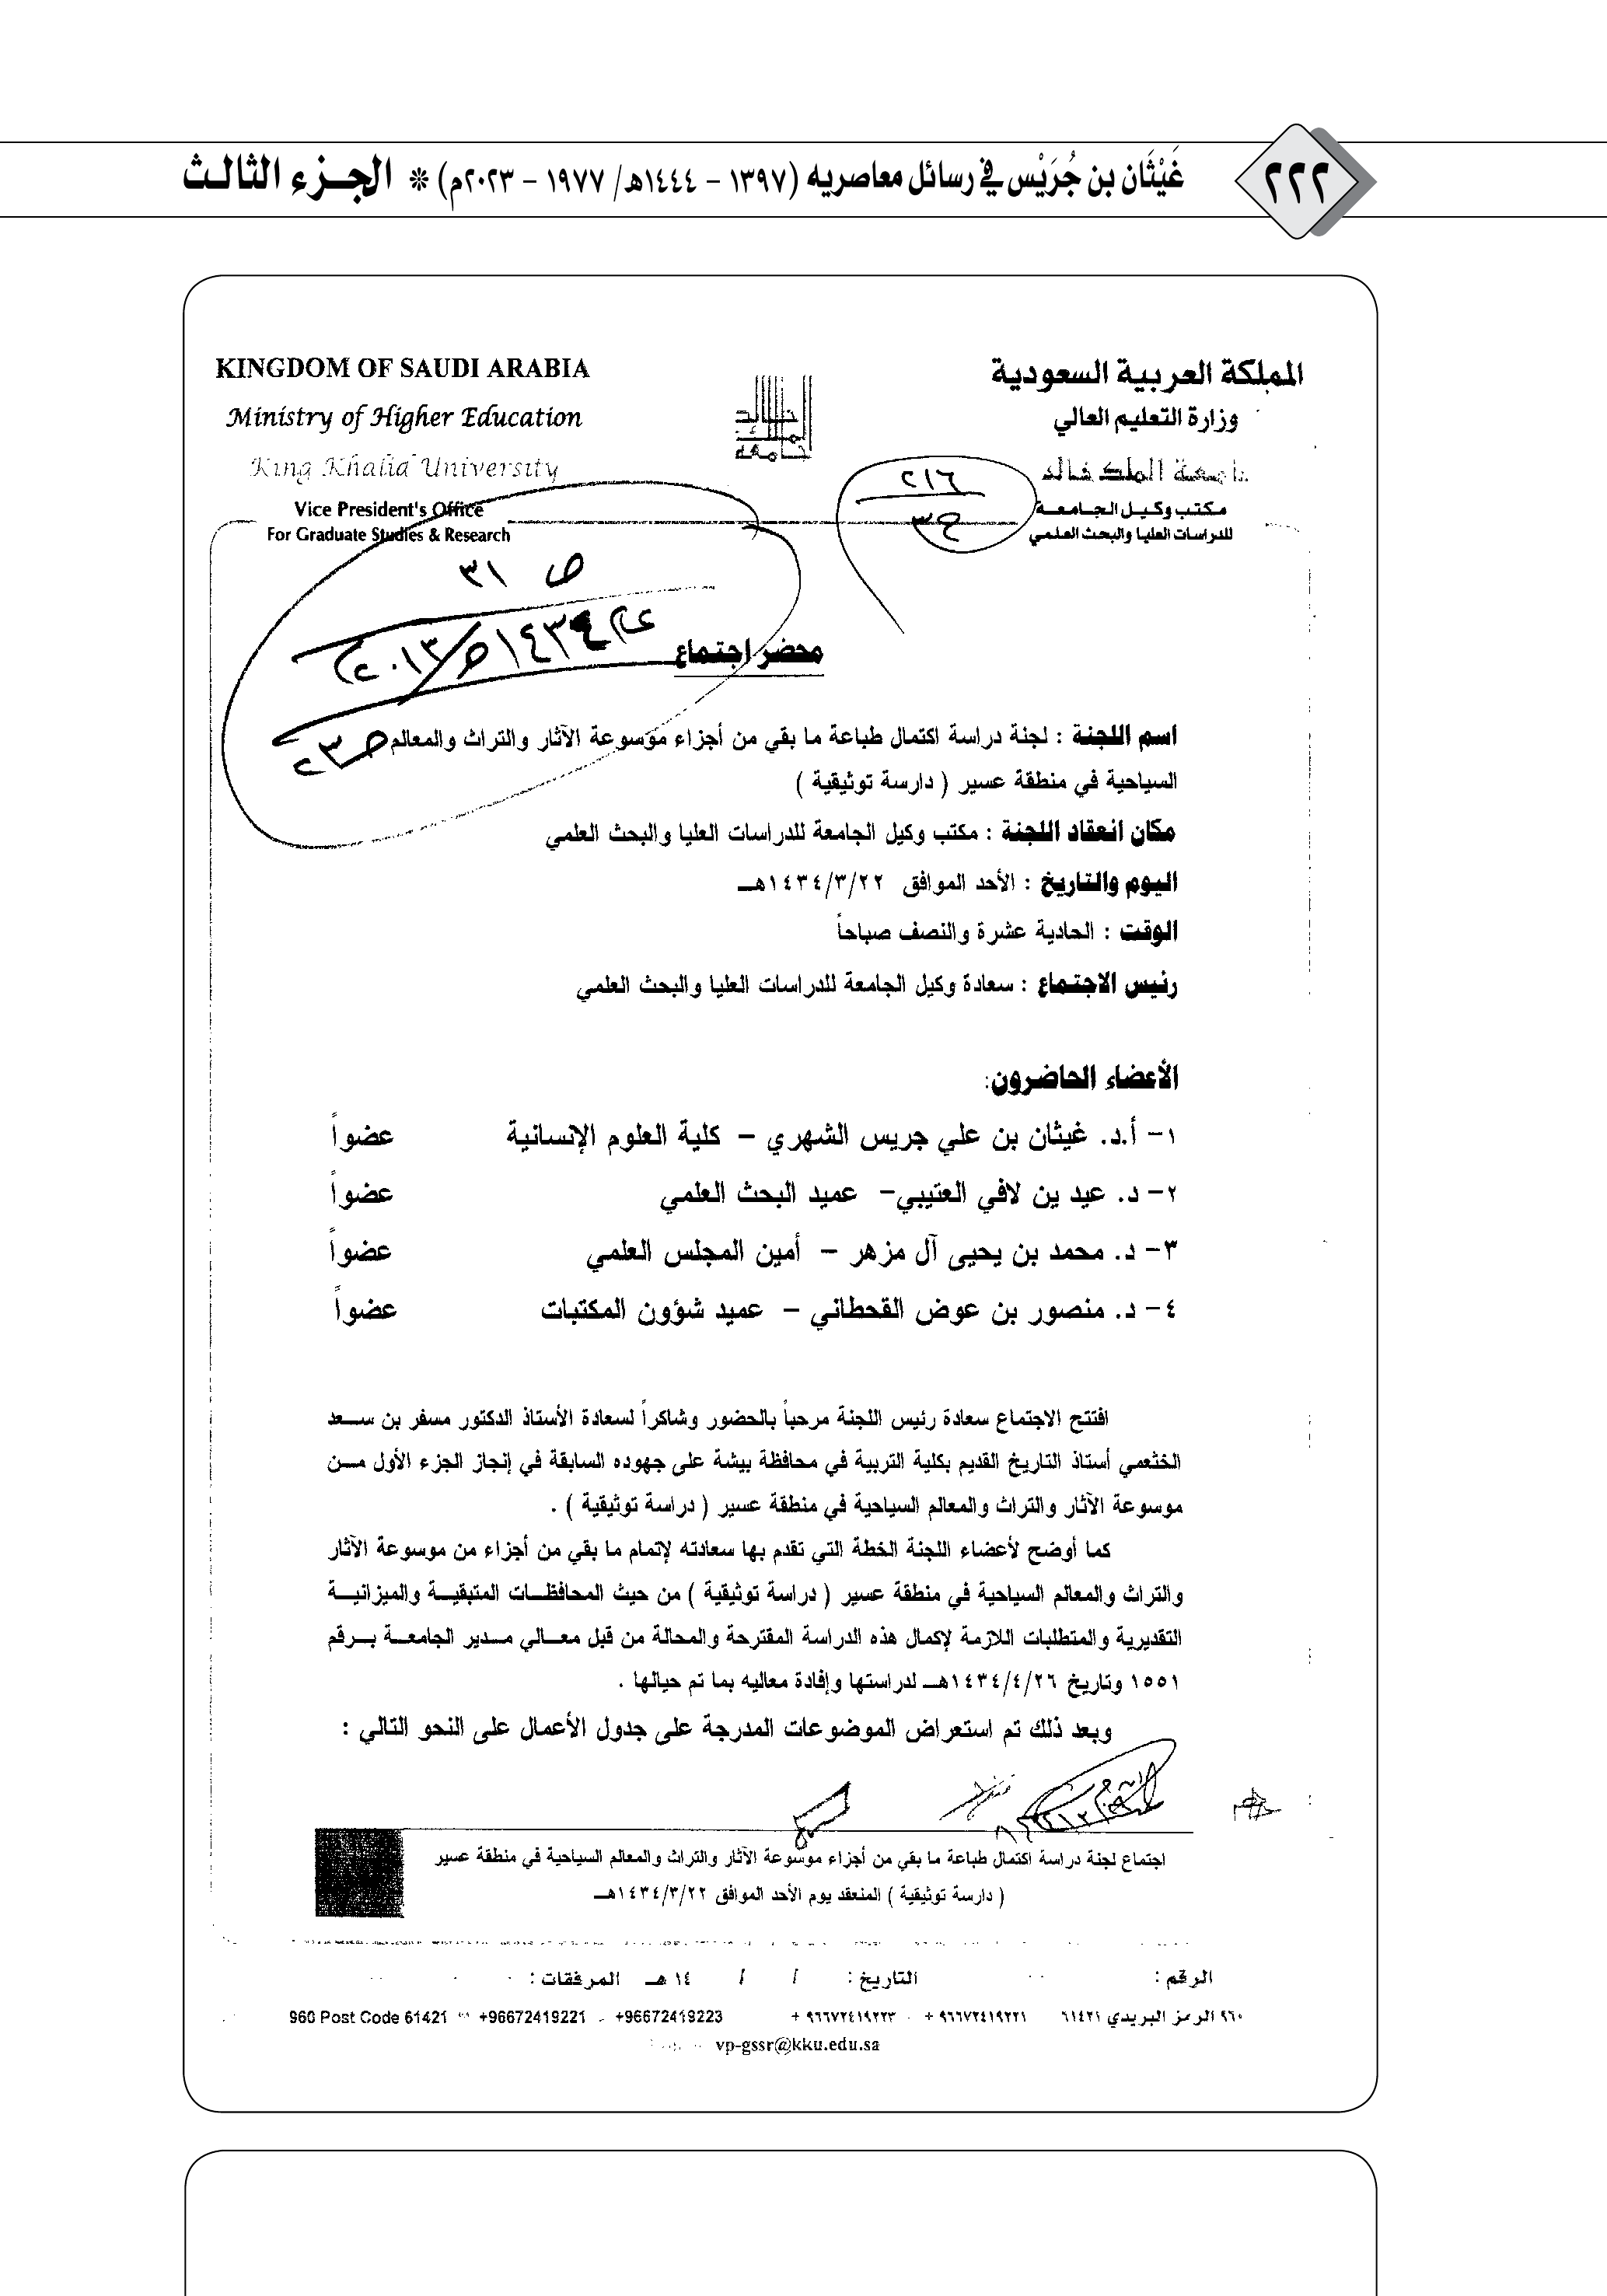 ٢٢٢
غَيْثَان بن جُرَيْس في رسائل معاصريه (١٣٩٧ – ١٤٤٤هـ/ ١٩٧٧ – ٢٠٢٣م) * الجزء الثالث
المملكة العربية السعودية
وزارة التعليم العالي
جامعة الملك خالد
مكتب وكيل الجامعة
للدراسات العليا والبحث العلمي
جامعة الملك خالد
KINGDOM OF SAUDI ARABIA
Ministry of Higher Education
King Khalid University
Vice President's Office
For Graduate Studies & Research
٢١٦
ج٣
ص ٣١
١٤٣٤هـ/٢٠١٣م
ص٣٢
محضر اجتماع
اسم اللجنة : لجنة دراسة اكتمال طباعة ما بقي من أجزاء موسوعة الآثار والتراث والمعالم
السياحية في منطقة عسير ( دارسة توثيقية )
مكان انعقاد اللجنة : مكتب وكيل الجامعة للدراسات العليا والبحث العلمي
اليوم والتاريخ : الأحد الموافق ١٤٣٤/٣/٢٢هـ
الوقت : الحادية عشرة والنصف صباحاً
رئيس الاجتماع : سعادة وكيل الجامعة للدراسات العليا والبحث العلمي
الأعضاء الحاضرون:
١- أ.د. غيثان بن علي جريس الشهري – كلية العلوم الإنسانية عضواً
٢- د. عيد بن لافي العتيبي- عميد البحث العلمي عضواً
٣- د. محمد بن يحيى آل مزهر – أمين المجلس العلمي عضواً
٤- د. منصور بن عوض القحطاني – عميد شؤون المكتبات عضواً
افتتح الاجتماع سعادة رئيس اللجنة مرحباً بالحضور وشاكراً لسعادة الأستاذ الدكتور مسفر بن سعد
الخثعمي أستاذ التاريخ القديم بكلية التربية في محافظة بيشة على جهوده السابقة في إنجاز الجزء الأول من
موسوعة الآثار والتراث والمعالم السياحية في منطقة عسير ( دراسة توثيقية ) .
كما أوضح لأعضاء اللجنة الخطة التي تقدم بها سعادته لإتمام ما بقي من أجزاء من موسوعة الآثار
والتراث والمعالم السياحية في منطقة عسير ( دراسة توثيقية ) من حيث المحافظات المتبقية والميزانية
التقديرية والمتطلبات اللازمة لإكمال هذه الدراسة المقترحة والمحالة من قبل معالي مدير الجامعة برقم
١٥٥١ وتاريخ ١٤٣٤/٤/٢٦هـ لدراستها وإفادة معاليه بما تم حيالها .
وبعد ذلك تم استعراض الموضوعات المدرجة على جدول الأعمال على النحو التالي :
اجتماع لجنة دراسة اكتمال طباعة ما بقي من أجزاء موسوعة الآثار والتراث والمعالم السياحية في منطقة عسير
( دارسة توثيقية ) المنعقد يوم الأحد الموافق ١٤٣٤/٣/٢٢هـ
الرقم : التاريخ : / / ١٤ هـ المرفقات :
٩٦٠ الرمز البريدي ٦١٤٢١ ٩٦٦٧٢٤١٩٢٢١ + ٩٦٦٧٢٤١٩٢٢٣ +
960 Post Code 61421 +96672419221 +96672419223
vp-gssr@kku.edu.sa